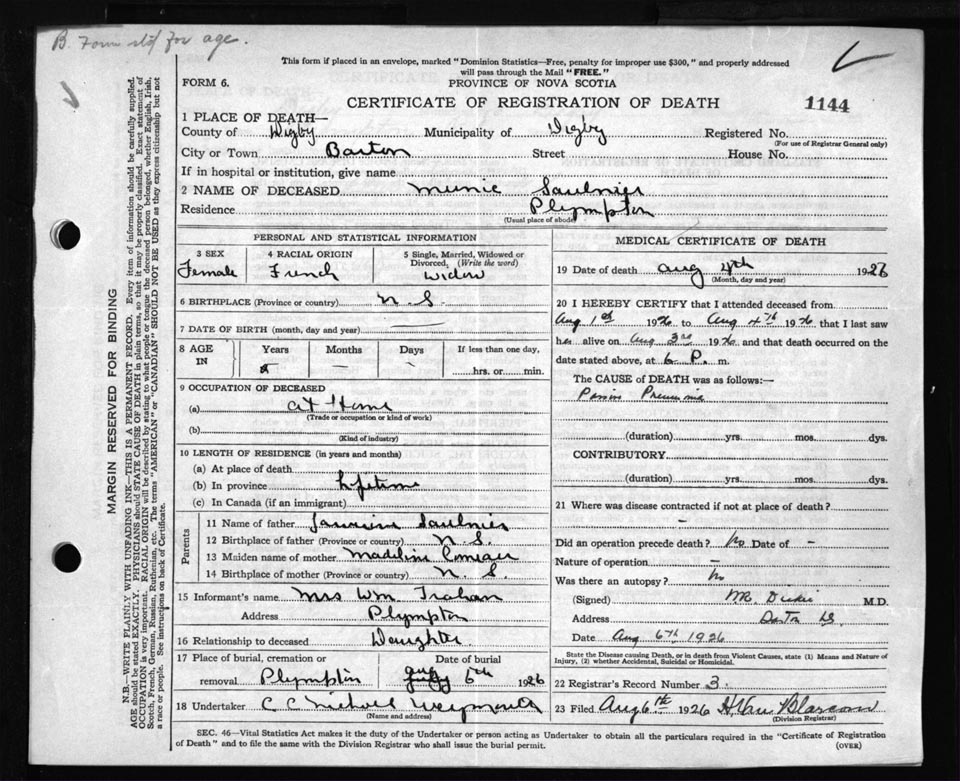 B. Form std for age.
This form if placed in an envelope, marked "Dominion Statistics—Free, penalty for improper use $300," and properly addressed
will pass through the Mail "FREE."
FORM 6.
PROVINCE OF NOVA SCOTIA
CERTIFICATE OF REGISTRATION OF DEATH
1144
1 PLACE OF DEATH—
County of Digby Municipality of Digby Registered No.
(For use of Registrar General only)
City or Town Barton Street House No.
If in hospital or institution, give name
2 NAME OF DECEASED Munie Saulnier
Residence Plympton
(Usual place of abode)
PERSONAL AND STATISTICAL INFORMATION
3 SEX 4 RACIAL ORIGIN 5 Single, Married, Widowed or
Divorced, (Write the word)
Female French Widow
6 BIRTHPLACE (Province or country) N S
7 DATE OF BIRTH (month, day and year) —
8 AGE IN Years Months Days If less than one day,
— — hrs. or min.
9 OCCUPATION OF DECEASED
(a) at Home
(Trade or occupation or kind of work)
(b)
(Kind of industry)
10 LENGTH OF RESIDENCE (in years and months)
(a) At place of death
(b) In province Lifetime
(c) In Canada (if an immigrant)
Parents
11 Name of father Saulnier
12 Birthplace of father (Province or country) N. S.
13 Maiden name of mother Madeline Comeau
14 Birthplace of mother (Province or country) N. S.
15 Informant's name Mrs Wm Trahan
Address Plympton
16 Relationship to deceased Daughter
17 Place of burial, cremation or Date of burial
removal Plymptin Aug 5th 1926
18 Undertaker C C Nichols Weymouth
(Name and address)
MEDICAL CERTIFICATE OF DEATH
19 Date of death Aug 4th 1926
(Month, day and year)
20 I HEREBY CERTIFY that I attended deceased from
Aug 1st 1926 to Aug 4th 1926 that I last saw
her alive on Aug 3rd 1926 and that death occurred on the
date stated above, at 6 P. m.
The CAUSE of DEATH was as follows:—
(duration) yrs. mos. dys.
CONTRIBUTORY
(duration) yrs. mos. dys.
21 Where was disease contracted if not at place of death?
—
Did an operation precede death? No Date of —
Nature of operation —
Was there an autopsy? No
(Signed) WR Dickie M.D.
Address Barton NS
Date Aug 6th 1926
State the Disease causing Death, or in death from Violent Causes, state (1) Means and Nature of
Injury, (2) whether Accidental, Suicidal or Homicidal.
22 Registrar's Record Number 3.
23 Filed Aug 6th 1926 H Van Blarcom
(Division Registrar)
SEC. 46—Vital Statistics Act makes it the duty of the Undertaker or person acting as Undertaker to obtain all the particulars required in the "Certificate of Registration
of Death" and to file the same with the Division Registrar who shall issue the burial permit.
(OVER)
MARGIN RESERVED FOR BINDING
N.B.—WRITE PLAINLY WITH UNFADING INK—THIS IS A PERMANENT RECORD. Every item of information should be carefully supplied.
AGE should be stated EXACTLY. PHYSICIANS should STATE CAUSE OF DEATH in plain terms, so that it may be properly classified. Exact statement of
OCCUPATION is very important. RACIAL ORIGIN will be described by stating to what people or tongue the deceased person belonged, whether English, Irish,
Scotch, French, German, Russian, Ruthenian, etc. The terms "AMERICAN" or "CANADIAN" SHOULD NOT BE USED as they express citizenship but not
a race or people. See instructions on back of Certificate.